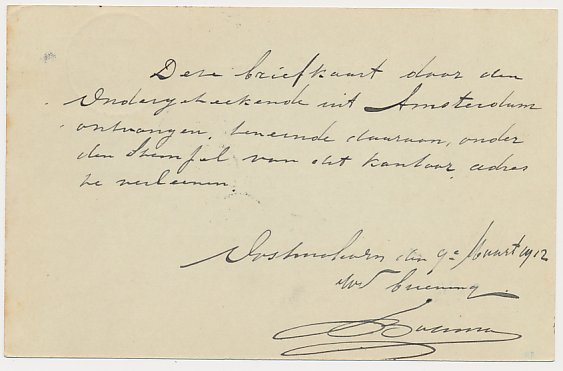 Deze briefkaart door den
Ondergeteekende uit Amsterdam
ontvangen, teneinde daaraan, onder
den Stempel van dit kantoor, adres
te verleenen.
Oostmahorn den 9e Maart 1912